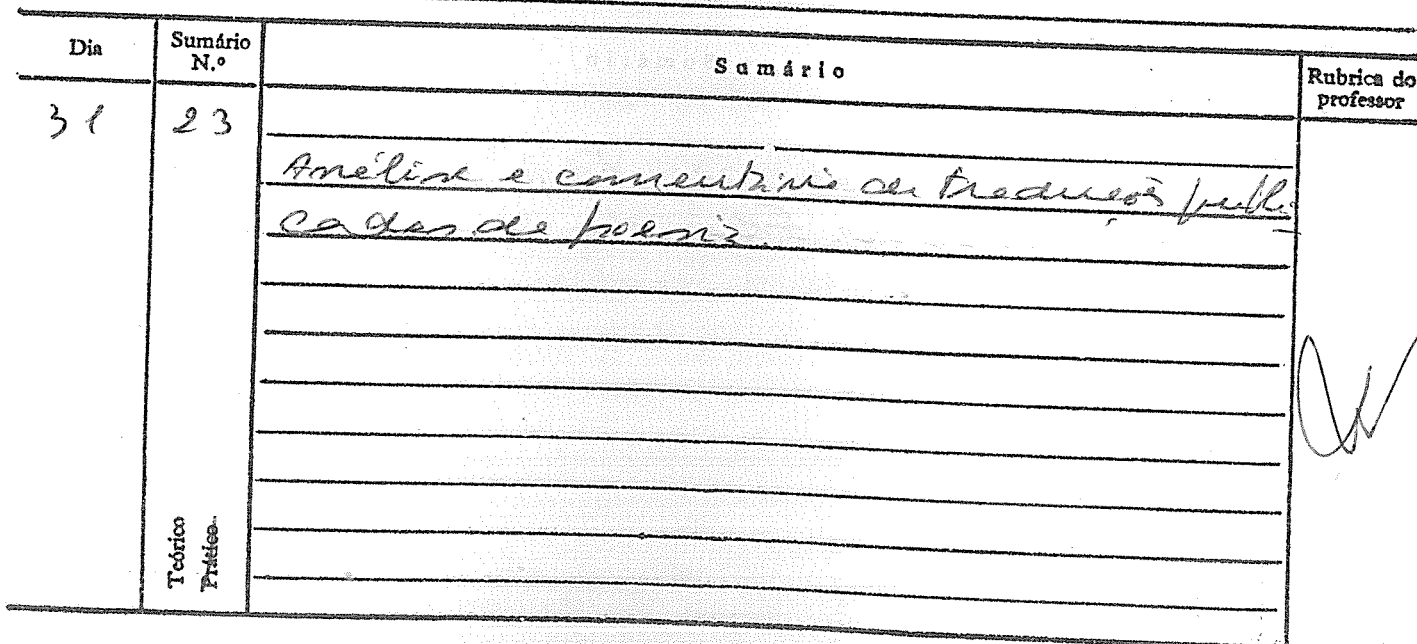 Dia
Sumário N.º
Sumário
Rubrica do professor
31
23
Análise e comentário de traduções publi-
cadas de poesia.
Teórico
Prático